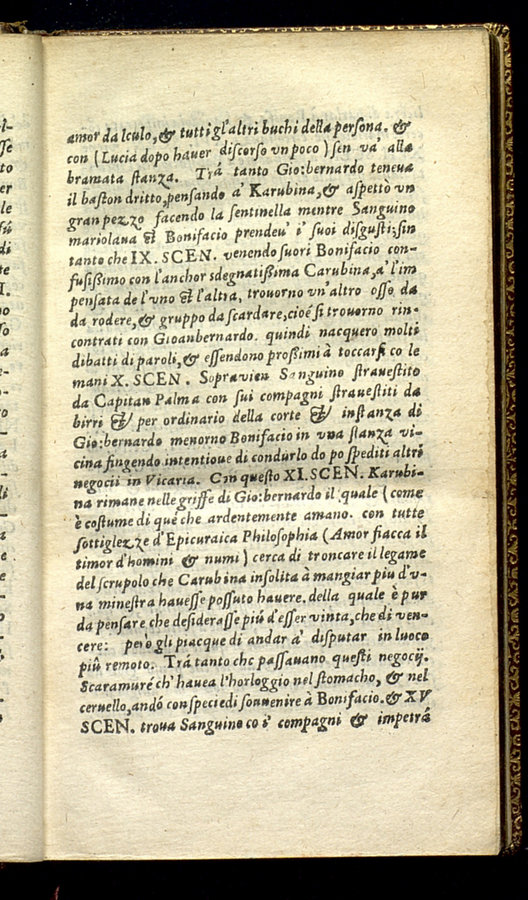 amor da lculo, & tutti gl'altri buchi della persona. &
con (Lucia dopo hauer discorso vn poco) sen va' alla
bramata stanza. Trá tanto Gio:bernardo teneua
il baston dritto, pensando a' Karubina, & aspettò vn
gran pezzo facendo la sentinella mentre Sanguino
mariolaua & Bonifacio prendeu' i' suoi disgusti: sin
tanto che IX. SCEN. venendo fuori Bonifacio con-
fusissimo con l'anchor sdegnatissima Carubina, a' l'im
pensata de l'vno & l'altra, trouorno vn'altro osso da
da rodere, & gruppo da scardare, cioé si trouorno rin-
contrati con Gioanbernardo. quindi nacquero molti
dibatti di paroli, & essendono prossimi à toccarsi co le
mani X. SCEN. Sopravien Sanguino strauestito
da Capitan Palma con sui compagni strauestiti da
birri & per ordinario della corte & instanza di
Gio:bernardo menorno Bonifacio in vna stanza vi-
cina fingendo intentione di condurlo do po spediti altri
negocii in Vicaria. Con questo XI. SCEN. Karubi-
na rimane nelle griffe di Gio:bernardo il quale (come
è costume di què che ardentemente amano. con tutte
sottiglezze d'Epicuraica Philosophia (Amor fiacca il
timor d'homini & numi) cerca di troncare il legame
del scrupolo che Carubina insolita à mangiar piu d'v-
na minestra hauesse possuto hauere. della quale è pur
da pensare che desiderasse piú d'esser vinta, che di ven-
cere: però gli piacque di andar a' disputar in luoco
piû remoto. Trá tanto che passauano questi negocij.
Scaramuré ch' hauea l'horloggio nel stomacho, & nel
ceruello, andó con specie di souuenire à Bonifacio. & XV
SCEN. troua Sanguino co i' compagni & impetrá